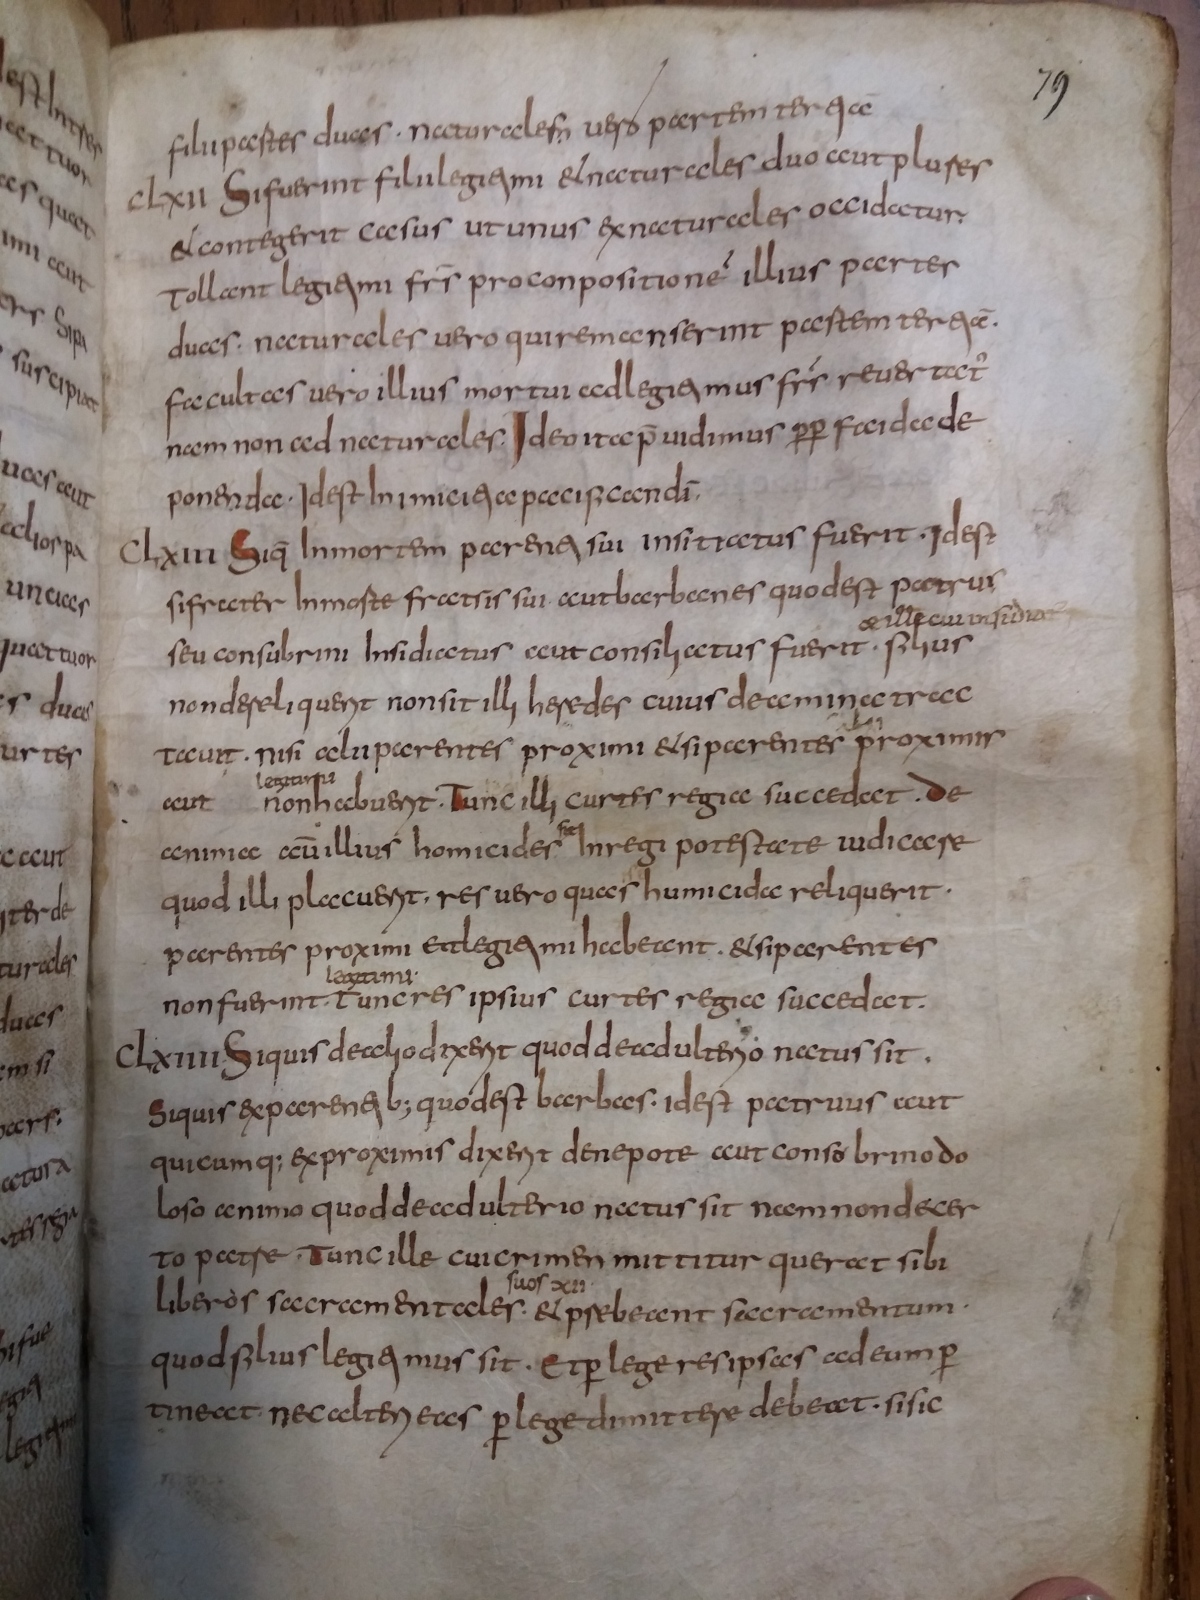 79
filii partes duas · naturales vero partem tertiā
CLXII Si fuerint filii legitimi & naturales duo aut plures
& contegerit casus ut unus ex naturales occidatur.
Tollant legitimi frs̄ pro conpositione illius partes
duas. naturales vero qui remanserint partem tertiā.
facultas vero illius mortui ad legitimus frs̄ revertat᾽
nam non ad naturales. Ideo ita p̄vidimus ꝓp faida de
ponenda · Idest inimicitia paciscandi.
CLXIII Siq̄ In mortem parenti sui insitiatus fuerit · Idest
si frater In morte fratris sui aut barbanes quod est patrus
& ille cui insidiat
seu consubrini Insidiatus aut consiliatus fuerit · filius
non dereliquerit non sit illi heredes cuius de amina trac
tavit · nisi alii parentes proximi & si parentes proximis
legitimi
aut non habuerit · Tunc illi curtes regia succedat · De
anima aū illius homicides In regi potestate iudicare
quod illi placuerit · res vero quas humicida reliquerit ·
parentes proximi ei legitimi habeant · & si parentes
legitimi
non fuerint · Tunc res ipsius curtes regia succedat ·
CLXIIII Si quis de alio dixerit quod de adulterio natus sit ·
Siquis ex parentib; quod est barbas · idest patruus aut
quicumq; ex proximis dixerit de nepote aut consobrino do
loso animo quod de adulterio natus sit nam non de cer
to patre · Tunc ille cui crimen mittitur querat sibi
suos XII
liberos sacramentales · & prebeant sacramentum ·
quod filius legitimus sit · Et ꝑ lege res ipsas ad eum ꝑ
tineat nec alteri eas ꝑ lege dimittere debeat · si sic